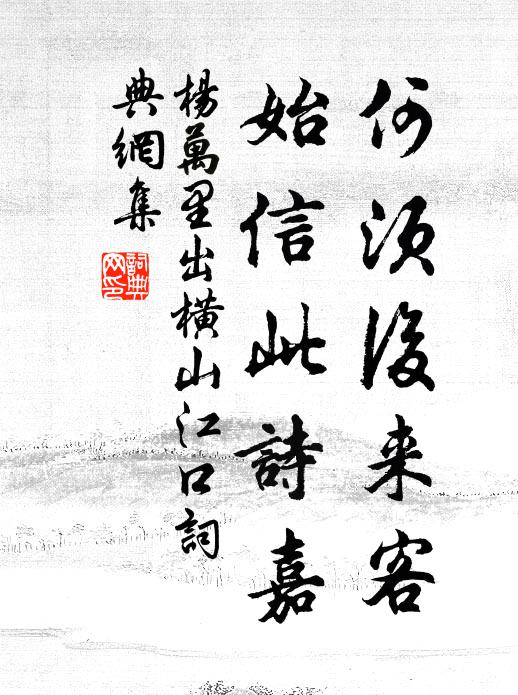 何須後来客
始信此詩嘉
楊萬里出横山江口詞
典網集
詞典
网印